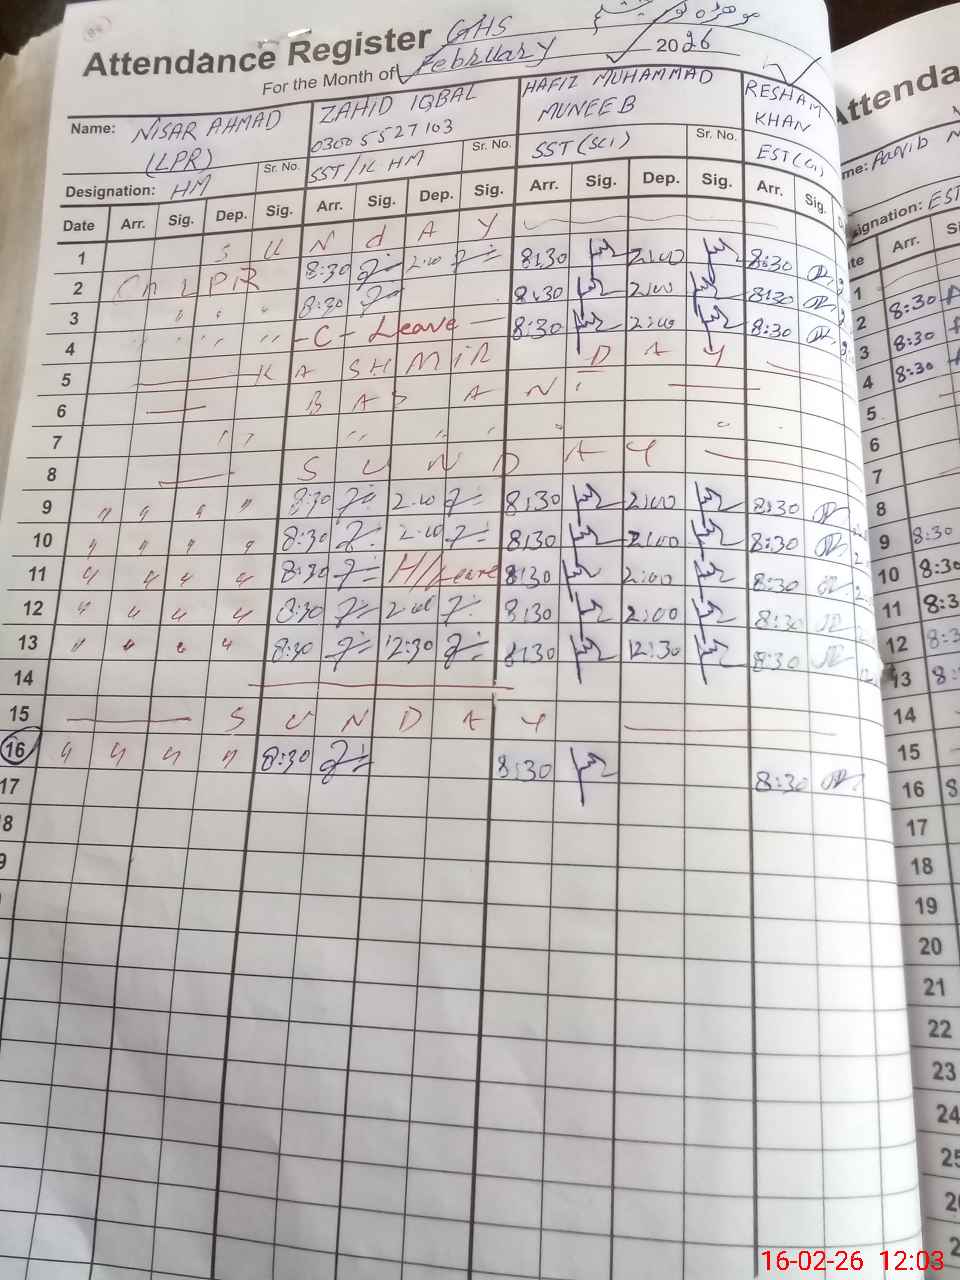 Attendance Register GHS
For the Month of February 2026
Name: NISAR AHMAD (LPR) ZAHID IQBAL 0300 5527103 HAFIZ MUHAMMAD MUNEEB RESHAM KHAN
Designation: HM Sr. No. SST/IC HM Sr. No. SST (SCI) Sr. No. EST
Date Arr. Sig. Dep. Sig. Arr. Sig. Dep. Sig. Arr. Sig. Dep. Sig. Arr. Sig.
1 S U N d A Y
2 On LPR 8:30 2:00 8:30 2:00 8:30
3 8:30 8:30 2:00 8:30
4 - C - Leave - 8:30 2:00 8:30
5 K A SH M i R D A Y
6
7
8 S U N D A Y
9 〃 〃 〃 〃 8:30 2:00 8:30 2:00 8:30
10 〃 〃 〃 〃 8:30 2:00 8:30 2:00 8:30
11 〃 〃 〃 〃 8:30 H/Leave 8:30 2:00 8:30
12 〃 〃 〃 〃 8:30 2:00 8:30 2:00 8:30
13 〃 〃 〃 〃 8:30 12:30 8:30 12:30 8:30
14
15 S U N D A Y
16 〃 〃 〃 〃 8:30 8:30 8:30
17
8
9
Attenda
me:
signation: EST
te Arr. Si
1
2 8:30
3 8:30
4 8:30
5
6
7
8
9 8:30
10 8:30
11 8:3
12 8:3
13 8:
14
15
16 8
17
18
19
20
21
22
23
24
25
2
2
16-02-26 12:03